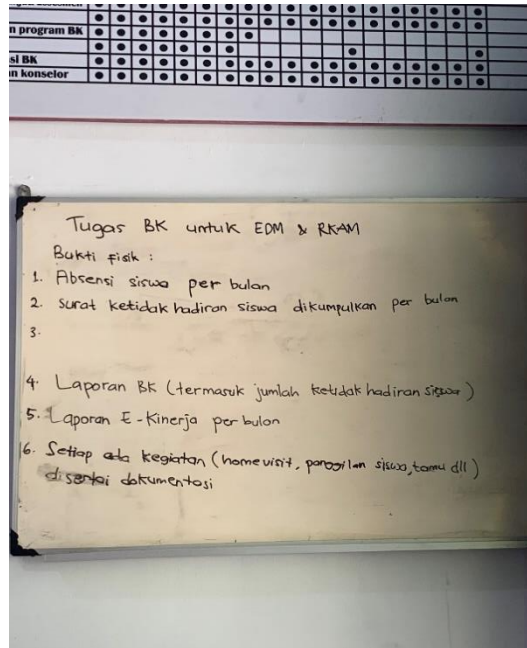 n program BK
si BK
n konselor
Tugas BK untuk EDM & RKAM
Bukti fisik :
1. Absensi siswa per bulan
2. Surat ketidak hadiran siswa dikumpulkan per bulan
3.
4. Laporan BK (termasuk jumlah ketidak hadiran siswa)
5. Laporan E-Kinerja per bulan
6. Setiap ada kegiatan (home visit, panggilan siswa, tamu dll)
disertai dokumentasi